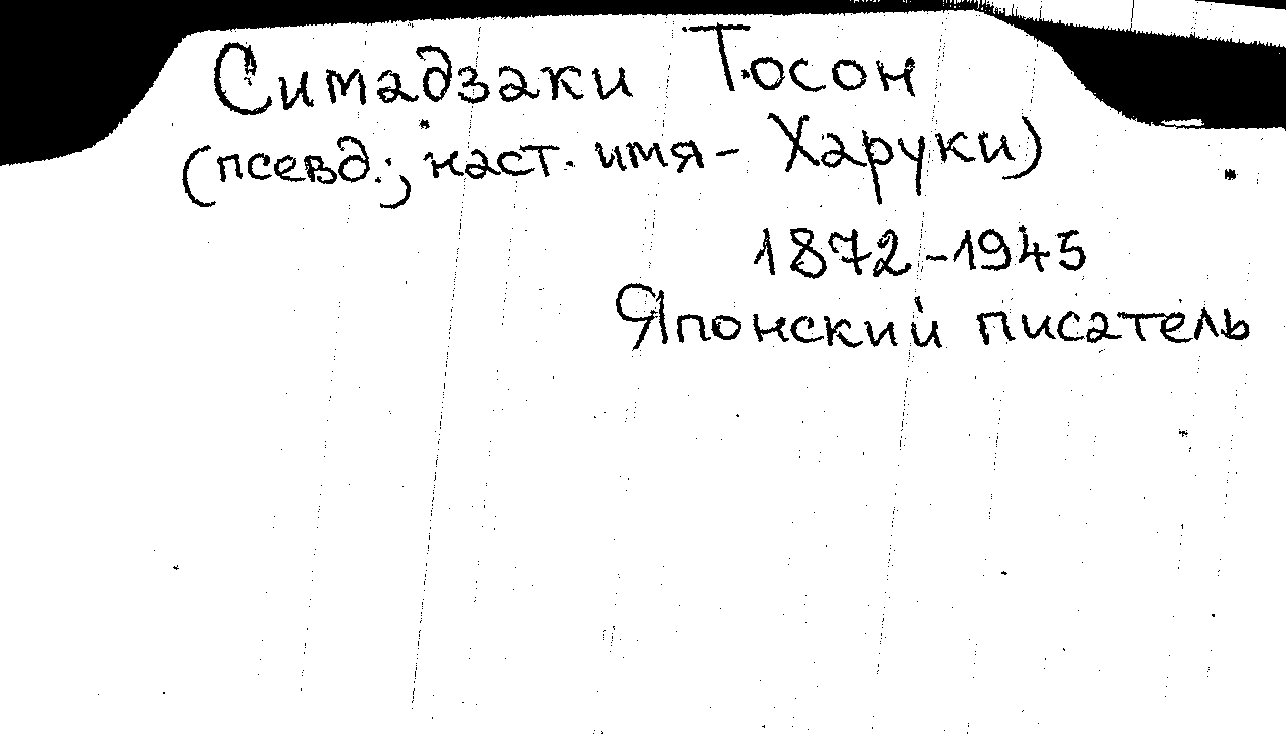 Симадзаки Тосон
(псевд.; наст. имя - Харуки)
1872-1945
Японский писатель